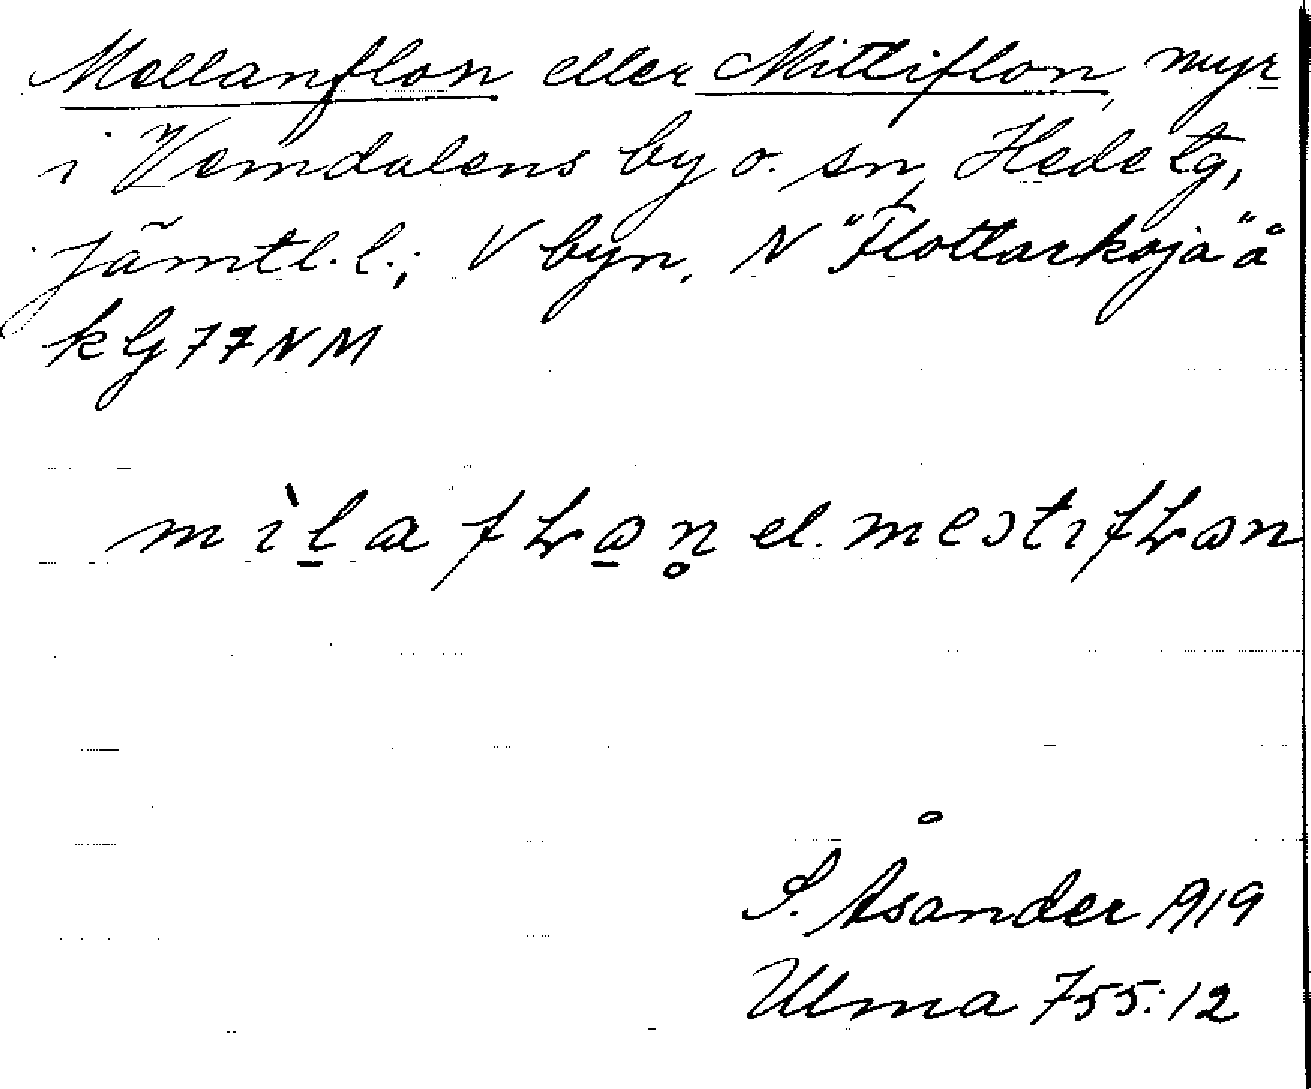 Mellanflon eller Mittiflon, myr
i Vemdalens by o. sn, Hede tg,
Jämtl. l.; V byn, N "Flottarkoja" å
kG 77 NM
el.
S. Åsander 1919
Ulma 755:12